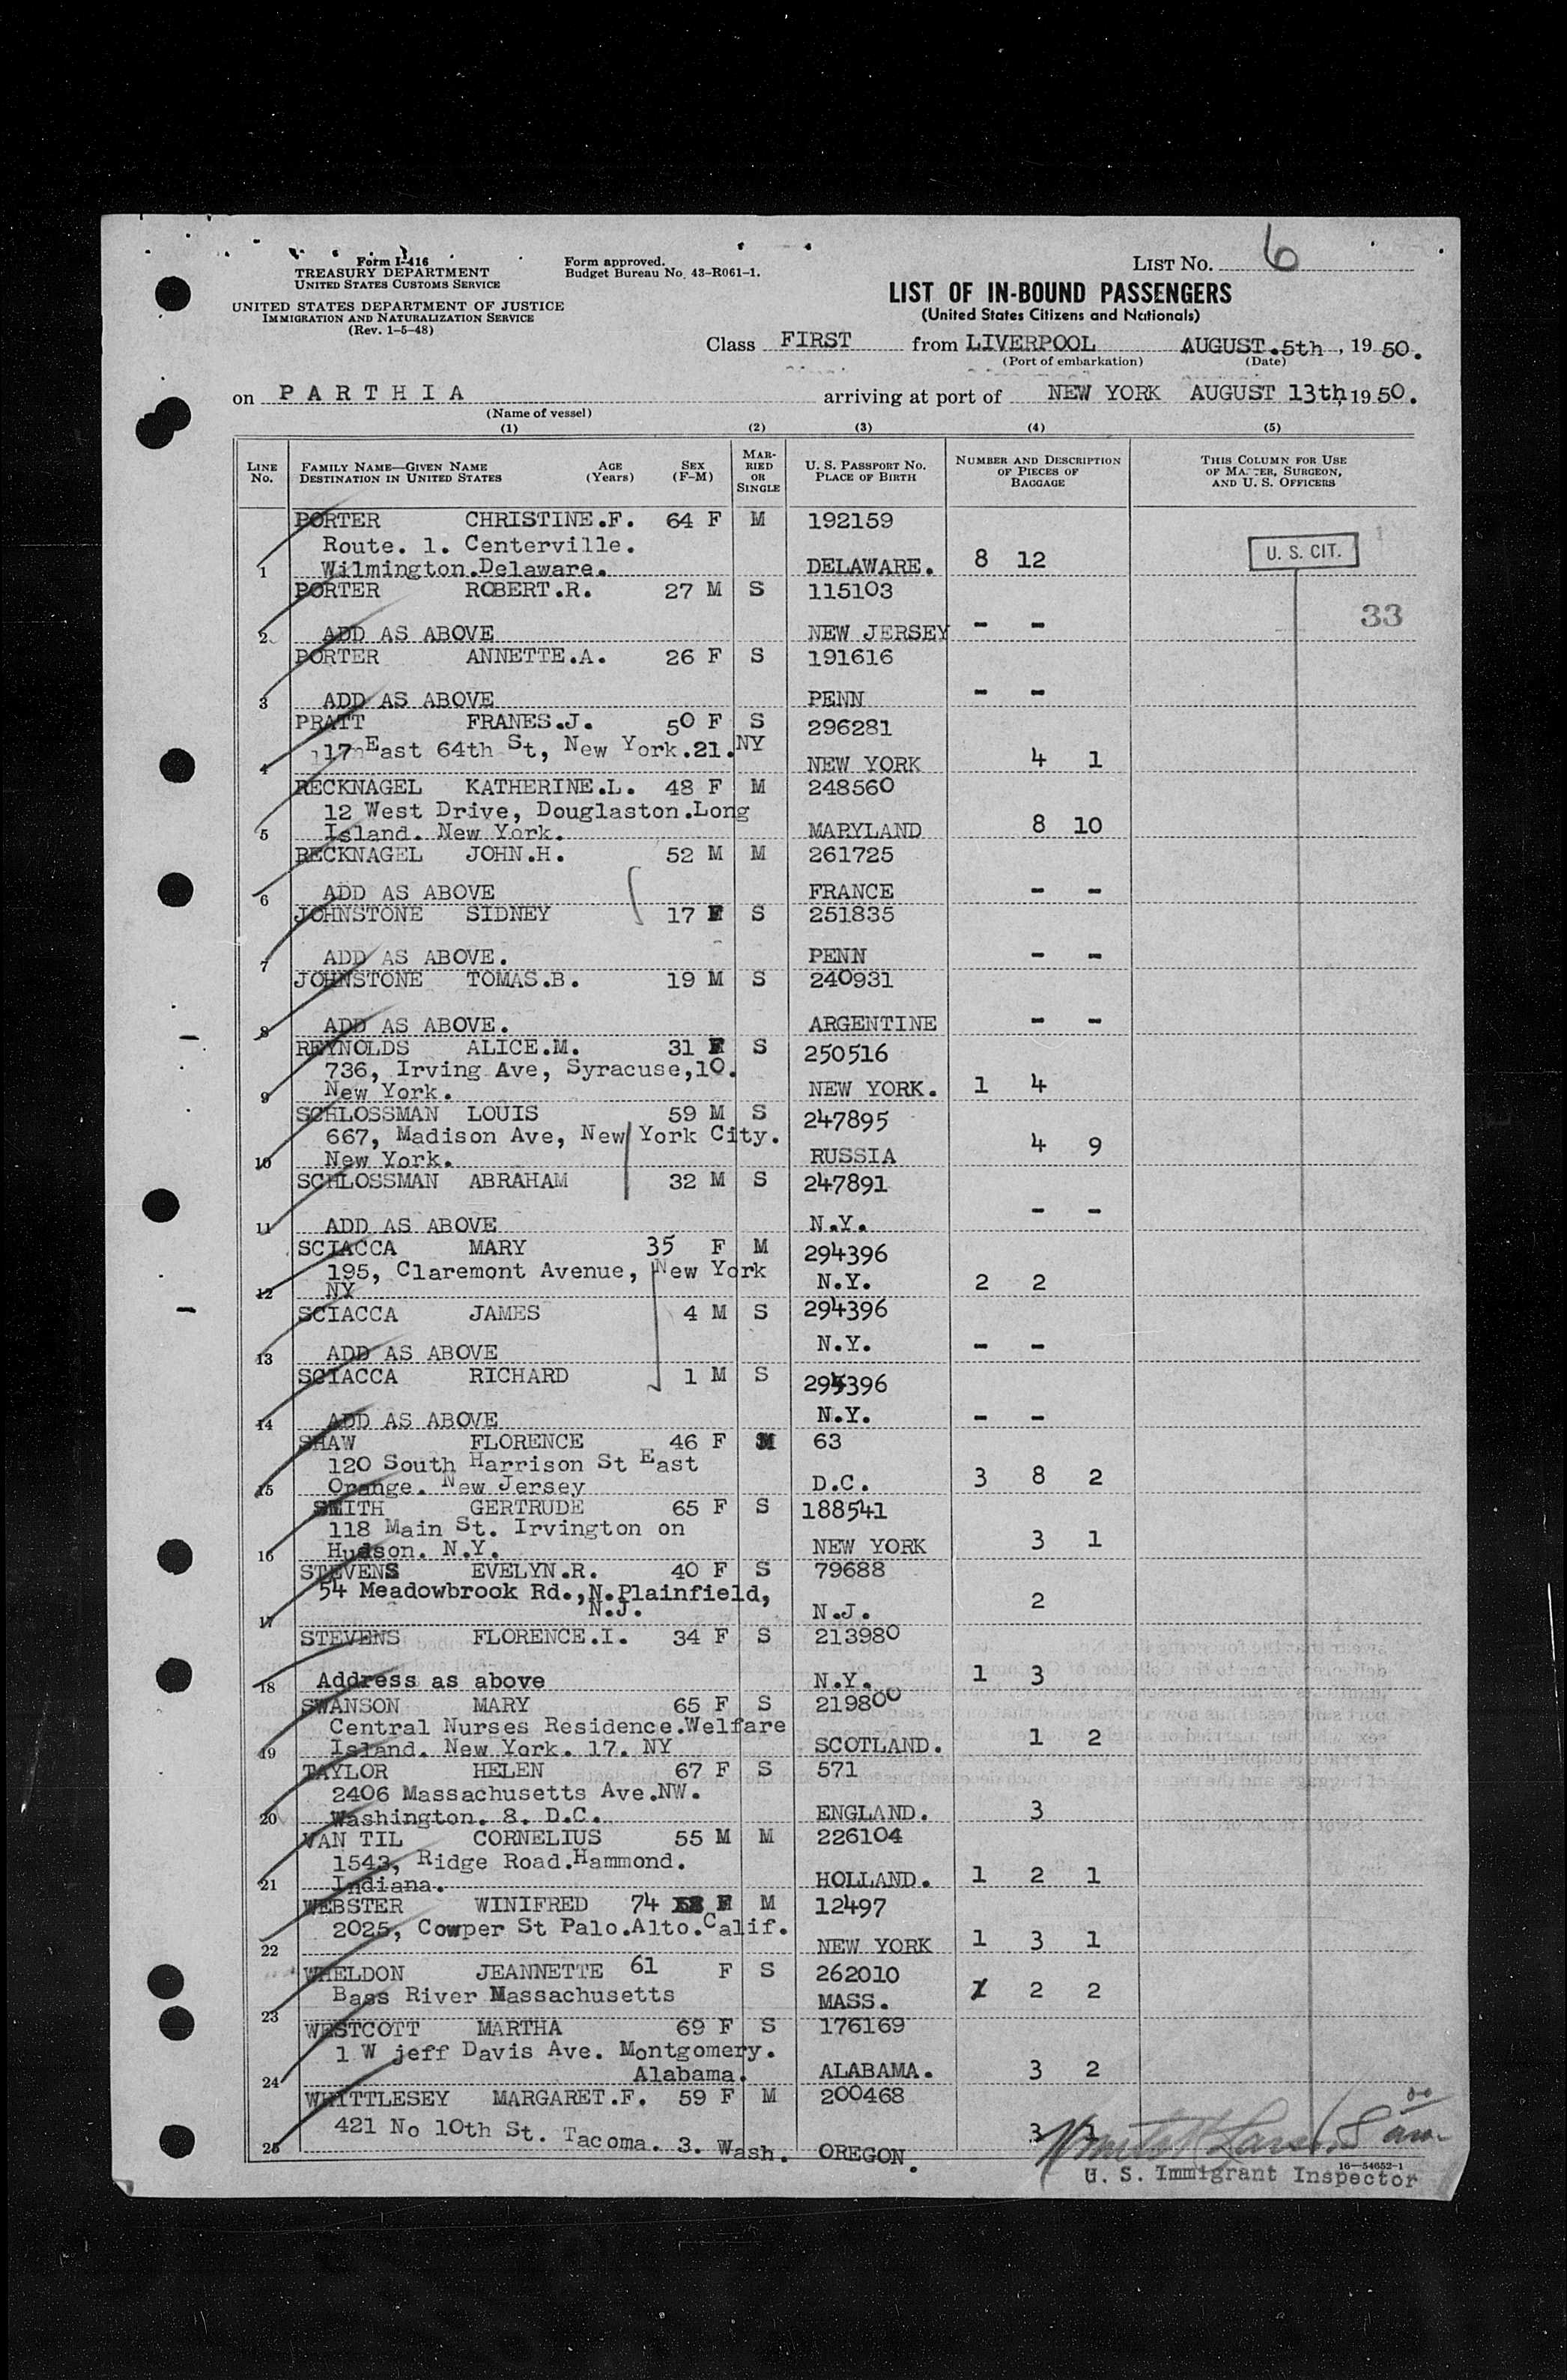 Form I-416
TREASURY DEPARTMENT
UNITED STATES CUSTOMS SERVICE
UNITED STATES DEPARTMENT OF JUSTICE
IMMIGRATION AND NATURALIZATION SERVICE
(Rev. 1-5-48)
Form approved.
Budget Bureau No. 43-R061-1.
LIST NO. 6
LIST OF IN-BOUND PASSENGERS
(United States Citizens and Nationals)
Class FIRST from LIVERPOOL AUGUST.5th, 19 50.
(Port of embarkation) (Date)
on PARTHIA arriving at port of NEW YORK AUGUST 13th, 19 50.
(Name of vessel)
(1) (2) (3) (4) (5)
LINE NO. FAMILY NAME—GIVEN NAME DESTINATION IN UNITED STATES AGE (Years) SEX (F-M) MARRIED OR SINGLE U. S. PASSPORT NO. PLACE OF BIRTH NUMBER AND DESCRIPTION OF PIECES OF BAGGAGE THIS COLUMN FOR USE OF MASTER, SURGEON, AND U. S. OFFICERS
PORTER CHRISTINE.F. 64 F M 192159
Route. 1. Centerville.
1 Wilmington.Delaware. DELAWARE. 8 12 U. S. CIT.
PORTER ROBERT.R. 27 M S 115103
33
2 ADD AS ABOVE NEW JERSEY - -
PORTER ANNETTE.A. 26 F S 191616
3 ADD AS ABOVE PENN - -
PRATT FRANES.J. 50 F S 296281
4 117 East 64th St, New York.21.NY NEW YORK 4 1
RECKNAGEL KATHERINE.L. 48 F M 248560
12 West Drive, Douglaston.Long
5 Island. New York. MARYLAND 8 10
RECKNAGEL JOHN.H. 52 M M 261725
6 ADD AS ABOVE FRANCE - -
JOHNSTONE SIDNEY 17 F S 251835
7 ADD AS ABOVE. PENN - -
JOHNSTONE TOMAS.B. 19 M S 240931
8 ADD AS ABOVE. ARGENTINE - -
REYNOLDS ALICE.M. 31 F S 250516
736, Irving Ave, Syracuse,10.
9 New York. NEW YORK. 1 4
SCHLOSSMAN LOUIS 59 M S 247895
667, Madison Ave, New York City.
10 New York. RUSSIA 4 9
SCHLOSSMAN ABRAHAM 32 M S 247891
11 ADD AS ABOVE N.Y. - -
SCIACCA MARY 35 F M 294396
195, Claremont Avenue, New York
12 NY N.Y. 2 2
SCIACCA JAMES 4 M S 294396
13 ADD AS ABOVE N.Y. - -
SCIACCA RICHARD 1 M S 294396
14 ADD AS ABOVE N.Y. - -
SHAW FLORENCE 46 F M 63
120 South Harrison St East
15 Orange. New Jersey D.C. 3 8 2
SMITH GERTRUDE 65 F S 188541
118 Main St. Irvington on
16 Hudson. N.Y. NEW YORK 3 1
STEVENS EVELYN.R. 40 F S 79688
54 Meadowbrook Rd.,N.Plainfield,
17 N.J. N.J. 2
STEVENS FLORENCE.I. 34 F S 213980
18 Address as above N.Y. 1 3
SWANSON MARY 65 F S 219800
Central Nurses Residence.Welfare
19 Island. New York. 17. NY SCOTLAND. 1 2
TAYLOR HELEN 67 F S 571
2406 Massachusetts Ave.NW.
20 Washington. 8. D.C. ENGLAND. 3
VAN TIL CORNELIUS 55 M M 226104
1543, Ridge Road.Hammond.
21 Indiana. HOLLAND. 1 2 1
WEBSTER WINIFRED 74 F M 12497
2025, Cowper St Palo.Alto.Calif.
22 NEW YORK 1 3 1
WHELDON JEANNETTE 61 F S 262010
Bass River Massachusetts
23 MASS. 1 2 2
WESTCOTT MARTHA 69 F S 176169
1 W jeff Davis Ave. Montgomery.
24 Alabama. ALABAMA. 3 2
WHITTLESEY MARGARET.F. 59 F M 200468
421 No 10th St. Tacoma. 3. Wash.
25 OREGON. 3
16—54652-1
U. S. Immigrant Inspector